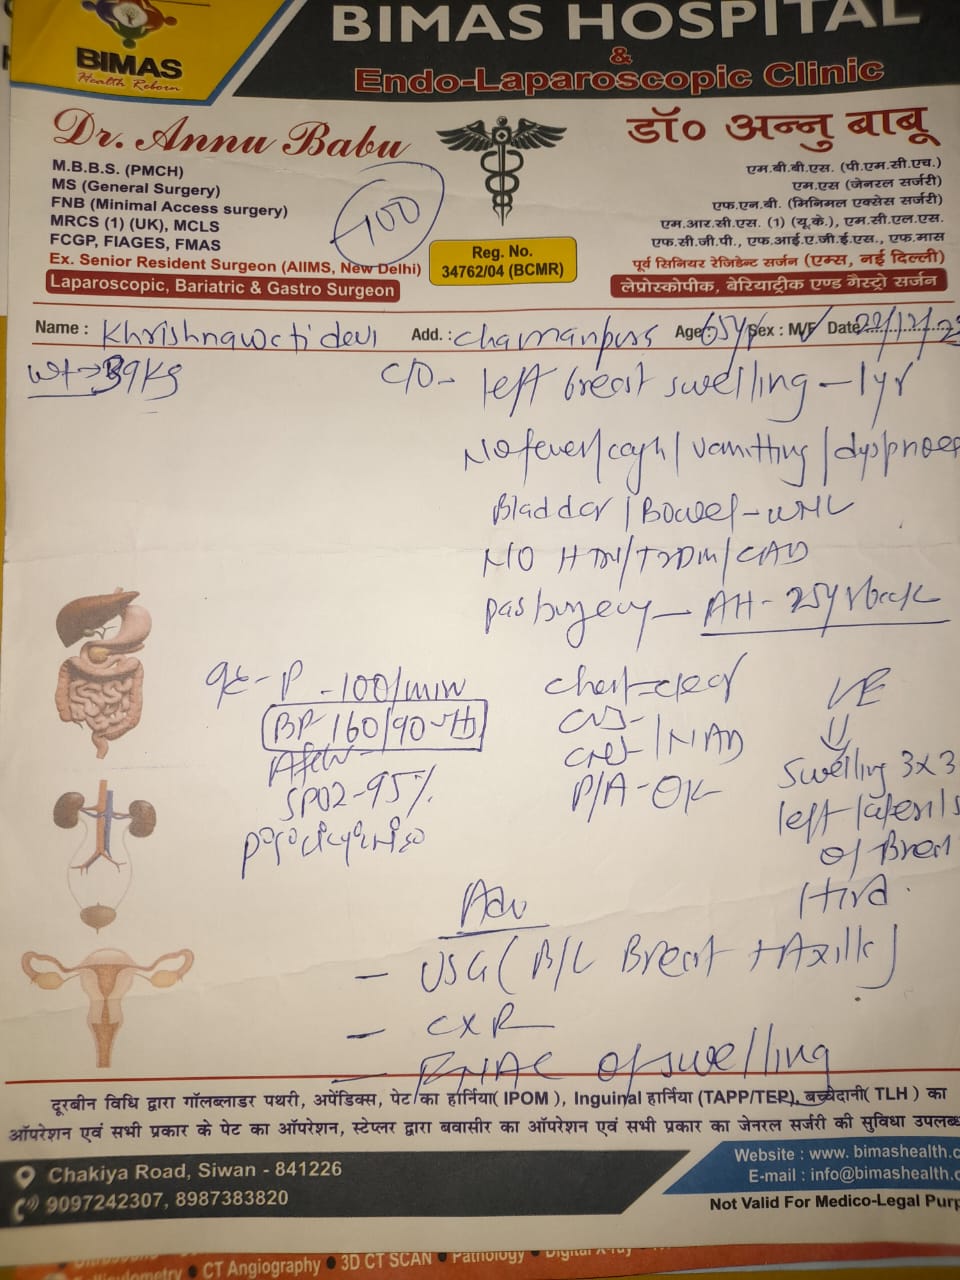 BIMAS
Health Reborn
BIMAS HOSPITAL
&
Endo-Laparoscopic Clinic
Dr. Annu Babu
M.B.B.S. (PMCH)
MS (General Surgery)
FNB (Minimal Access surgery)
MRCS (1) (UK), MCLS
FCGP, FIAGES, FMAS
Ex. Senior Resident Surgeon (AIIMS, New Delhi)
Laparoscopic, Bariatric & Gastro Surgeon
700
Reg. No.
34762/04 (BCMR)
डॉ० अन्नु बाबू
एम.बी.बी.एस. (पी.एम.सी.एच.)
एम.एस (जेनरल सर्जरी)
एफ.एन.बी. (मिनिमल एक्सेस सर्जरी)
एम.आर.सी.एस. (1) (यू.के.), एम.सी.एल.एस.
एफ.सी.जी.पी., एफ.आई.ए.जी.ई.एस., एफ.मास
पूर्व सिनियर रेजिडेन्ट सर्जन (एम्स, नई दिल्ली)
लेप्रोस्कोपीक, बेरियाट्रीक एण्ड गैस्ट्रो सर्जन
Name : Khrishnawati devi Add. : Chamanpura Age 65y Sex : M/F Date 22/12/23
wt → 39kg
C/O - left breast swelling - 1yr
No fever/cough/vomitting/dyspnoea
Bladder/Bowel - WNL
NO HTN/T2DM/CAD
past surgery - AH - 25yr back
P - 100/min
BP - 160/90
SPO2 - 95%
chest - clear
CVS -
CNS - /NAD
P/A - OK
LE
swelling 3x3
left lateral
of Breast
Adv
- USG (B/L Breast + Axilla)
- CXR
- FNAC of swelling
दूरबीन विधि द्वारा गॉलब्लाडर पथरी, अपेंडिक्स, पेट का हार्निया( IPOM ), Inguinal हार्निया (TAPP/TEP), बच्चेदानी( TLH ) का
ऑपरेशन एवं सभी प्रकार के पेट का ऑपरेशन, स्टेप्लर द्वारा बवासीर का ऑपरेशन एवं सभी प्रकार का जेनरल सर्जरी की सुविधा उपलब्ध
Chakiya Road, Siwan - 841226
9097242307, 8987383820
Website : www. bimashealth.c
E-mail : info@bimashealth.c
Not Valid For Medico-Legal Purp
CT Angiography • 3D CT SCAN • Pathology